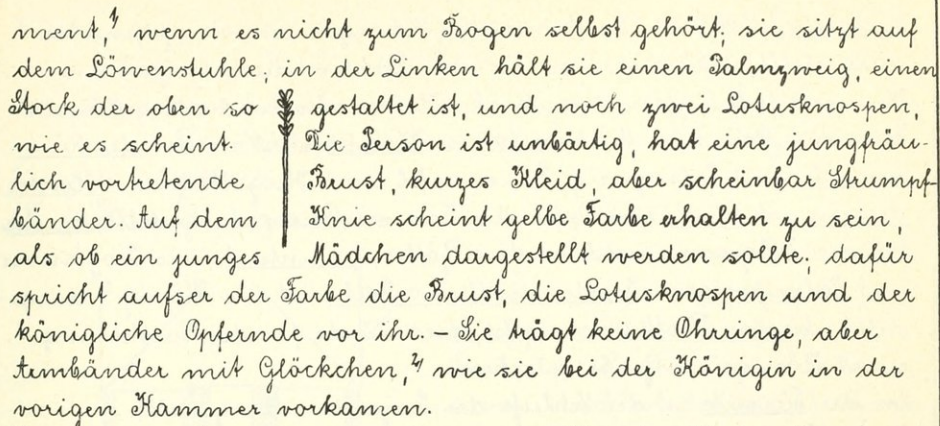 ment,¹⁾ wenn es nicht zum Bogen selbst gehört; sie sitzt auf
dem Löwenstuhle; in der Linken hält sie einen Palmzweig, einen
Stock der oben so gestaltet ist, und noch zwei Lotusknospen,
wie es scheint. Die Person ist unbärtig, hat eine jungfräu-
lich vortretende Brust, kurzes Kleid, aber scheinbar Strumpf-
bänder. Auf dem Knie scheint gelbe Farbe erhalten zu sein,
als ob ein junges Mädchen dargestellt werden sollte; dafür
spricht aufser der Farbe die Brust, die Lotusknospen und der
königliche Opfernde vor ihr. – Sie trägt keine Ohrringe, aber
Armbänder mit Glöckchen,²⁾ wie sie bei der Königin in der
vorigen Kammer vorkamen.